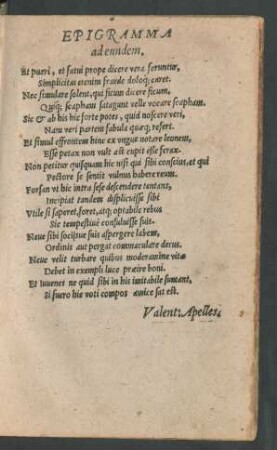 EPIGRAMMA
ad eundem.
Et pueri, et fatui prope dicere vera feruntur,
Simplicitas etenim fraude doloq; caret.
Nec simulare solent, qui ficum dicere ficum,
Quiq; scapham satagunt velle vocare scapham.
Sic & ab his hic forte potes, quid nosceret veri,
Nam veri partem fabula quæq; refert.
Et simul effrontem hinc ex vngue notare leonem,
Esse petax non vult ast cupit esse ferax.
Non petitur quisquam hic nisi qui sibi conscius, et qui
Pectore se sentit vulnus habere reum.
Forsan vt hic intra sese descendere tentans,
Incipiat tandem displicuisse sibi
Vtile si saperet, foret, atq; optabile rebus
Sic tempestiue consuluisse suis.
Neue sibi socijsue suis aspergere labem,
Ordinis aut pergat commaculare decus.
Neue velit turbare quibus moderamine vitæ
Debet in exempli luce præire boni.
Et iuuenes ne quid sibi in his imitabile sumant,
Si fuero hic voti compos amice sat est.
Valent: Apelles.